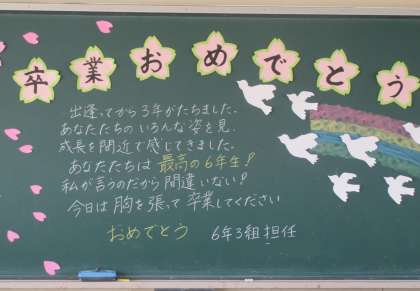 卒業おめでとう
出逢ってから3年がたちました。
あなたたちのいろんな姿を見、
成長を間近で感じてきました。
あなたたちは最高の6年生!
私が言うのだから間違いない!
今日は胸を張って卒業してください
おめでとう 6年3組担任